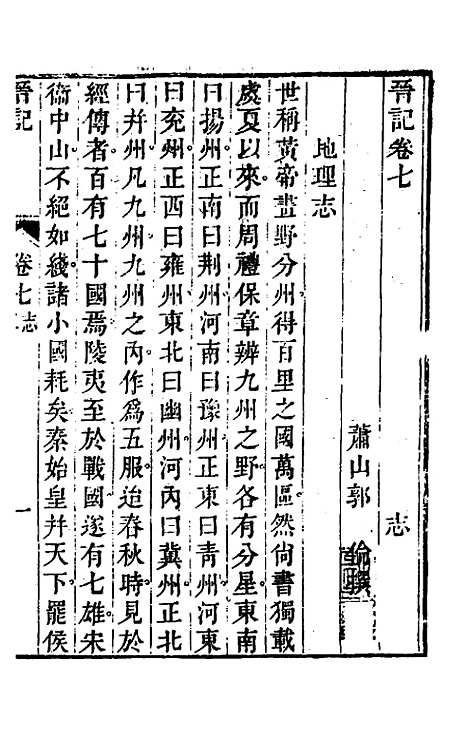 晉記卷七
志
蕭山郭倫撰
地理志
世稱黃帝畫野分州得百里之國萬區然尙書獨載
虞夏以來而周禮保章辨九州之野各有分星東南
曰揚州正南曰荆州河南曰豫州正東曰青州河東
曰兖州正西曰雍州東北曰幽州河內曰冀州正北
曰幷州凡九州九州之內作爲五服迨春秋時見於
經傳者百有七十國焉陵夷至於戰國遂有七雄宋
衞中山不絕如綫諸小國耗矣秦始皇幷天下罷侯
晉記
卷七志
一